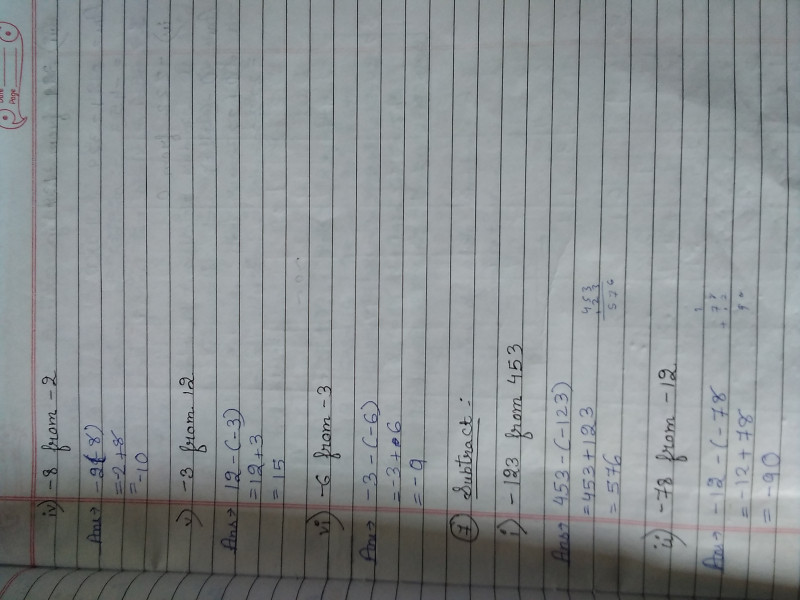 Date
Page
iv) -8 from -2
Ans→ -2(-8)
= -2+8
= -10
v) -3 from 12
Ans→ 12-(-3)
= 12+3
= 15
vi) -6 from -3
Ans→ -3-(-6)
= -3+6
= -9
7 Subtract:
i) -123 from 453
Ans→ 453-(-123)
= 453+123
= 576
453
123
576
ii) -78 from -12
Ans→ -12-(-78
= -12+78
= -90